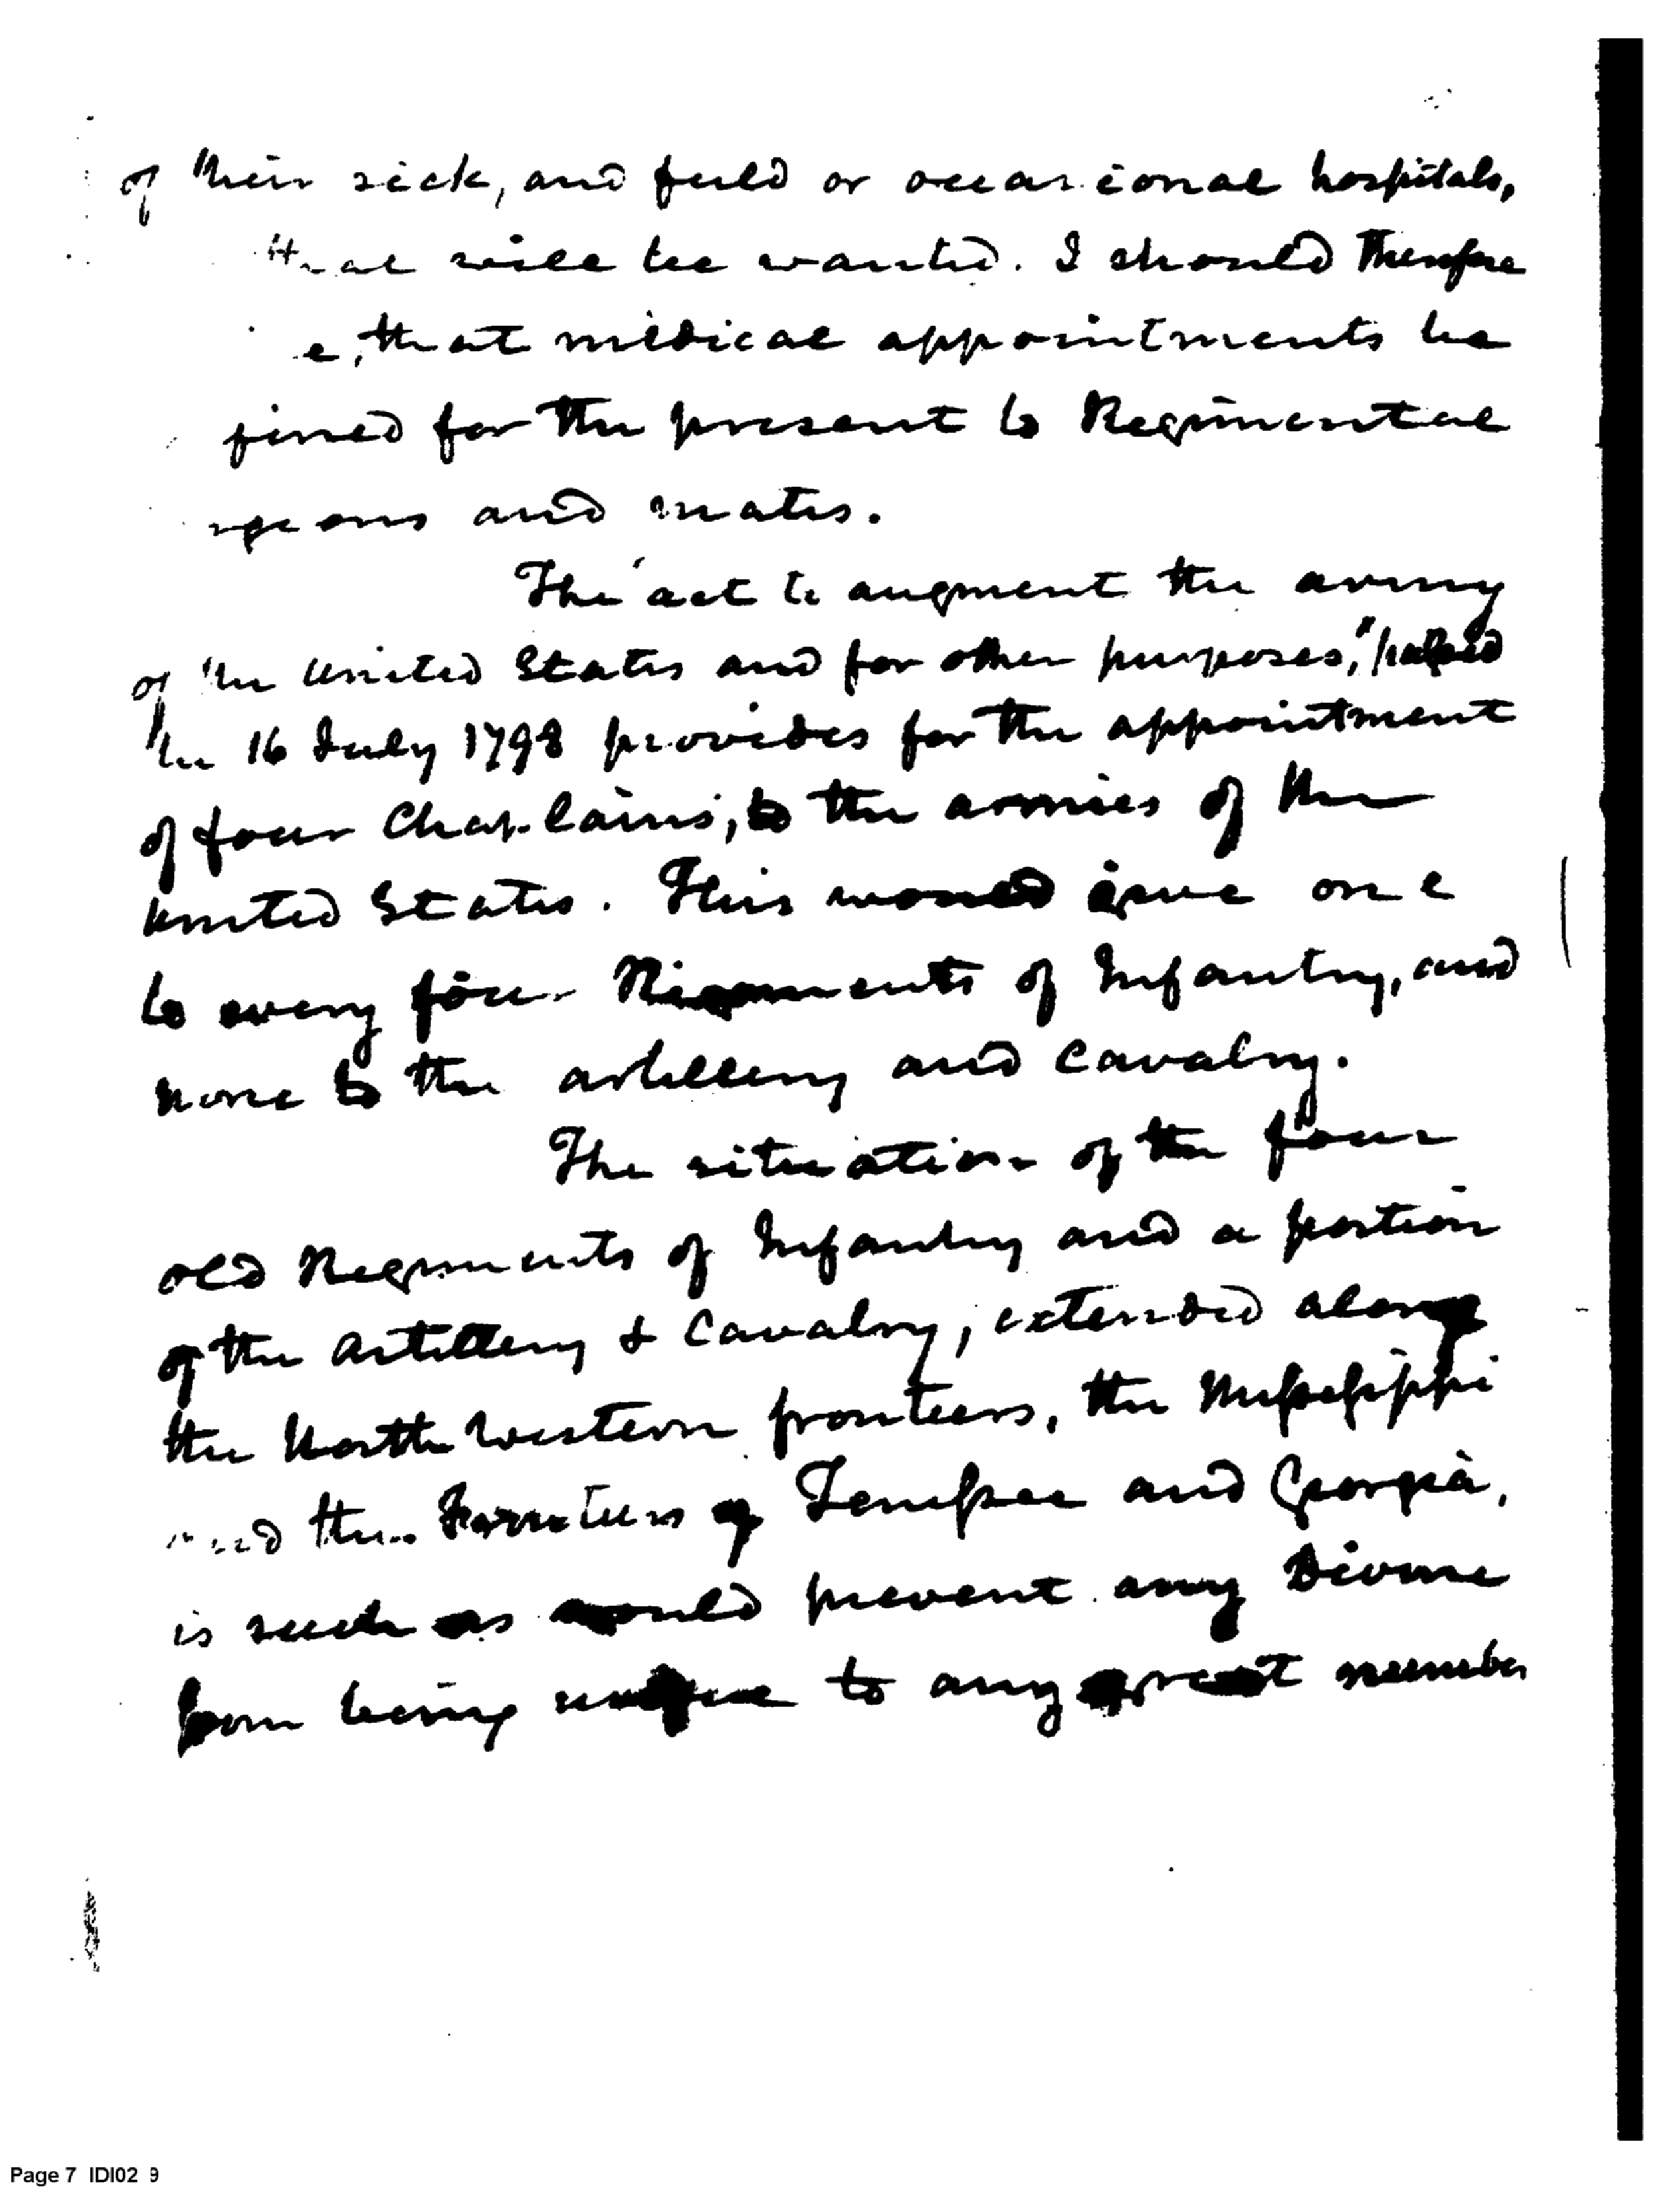 of their sick, and field or occasional hospitals,
that will be wanted. I should therefore
e, that medical appointments be
fined for the present to Regimental
rgeons and mates.
The act to augment the army
of the United States and for other purposes," passed
the 16 July 1798 provides for the appointment
of four Chaplains, to the armies of the
United States. This would give one
to every four Regiments of Infantry, and
none to the artillery and cavalry.
The situation of the four
old Regiments of Infantry and a portion
of the Artillery & Cavalry, extended along
the North Western frontiers, the Mississippi
and the frontiers of Tennessee and Georgia,
is such as would prevent any Divine
from being to any great number
Page 7 IDI02 9